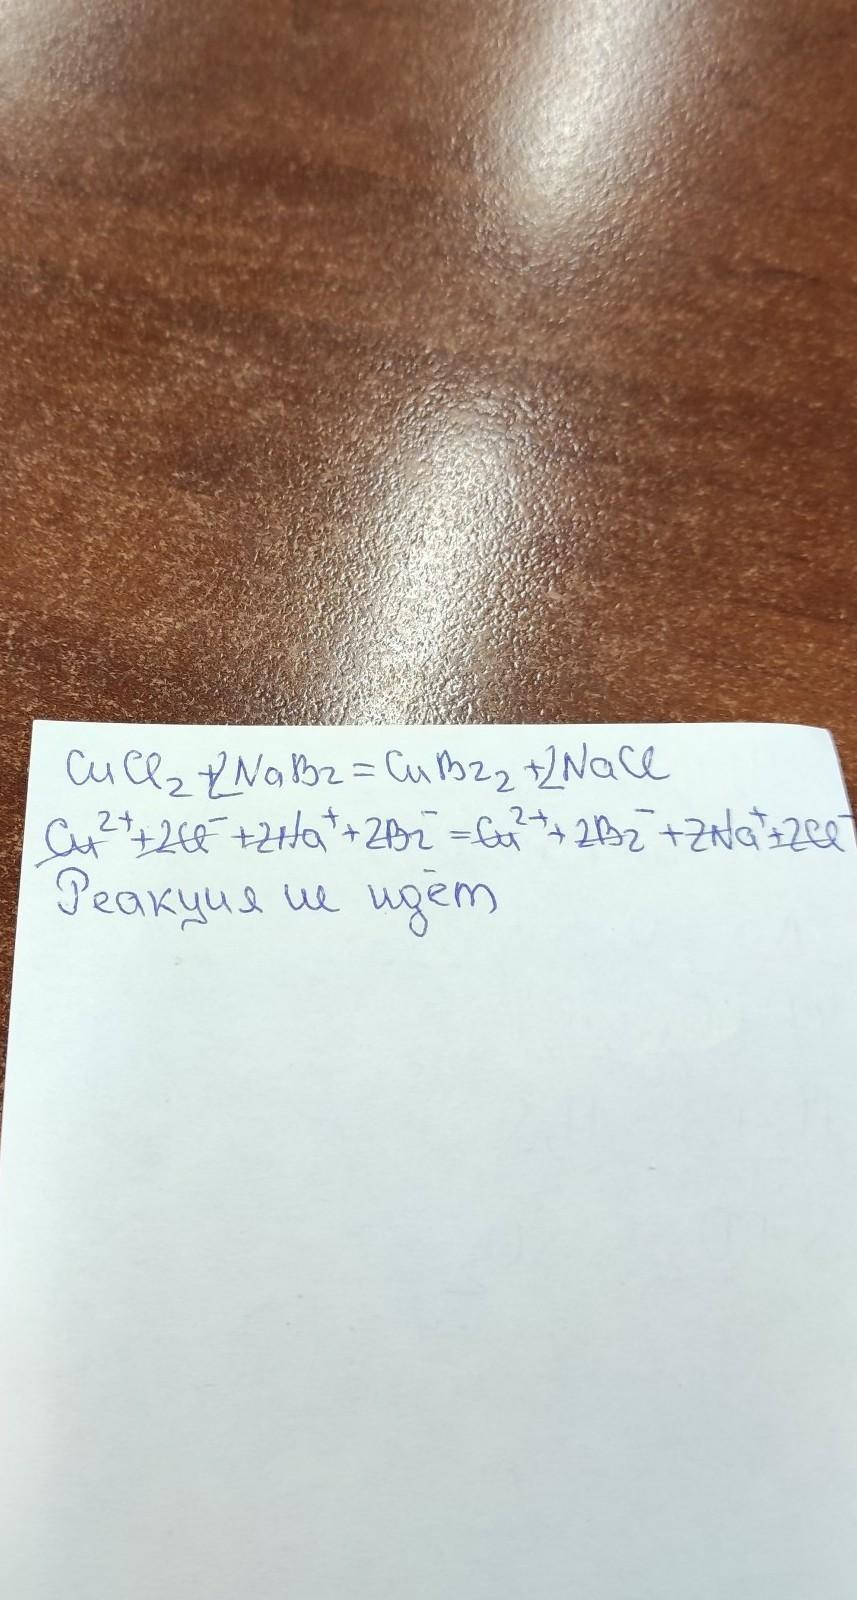 CuCl₂ + 2NaBr = CuBr₂ + 2NaCl
Cu²⁺ + 2Cl⁻ + 2Na⁺ + 2Br⁻ = Cu²⁺ + 2Br⁻ + 2Na⁺ + 2Cl⁻
Реакция не идёт